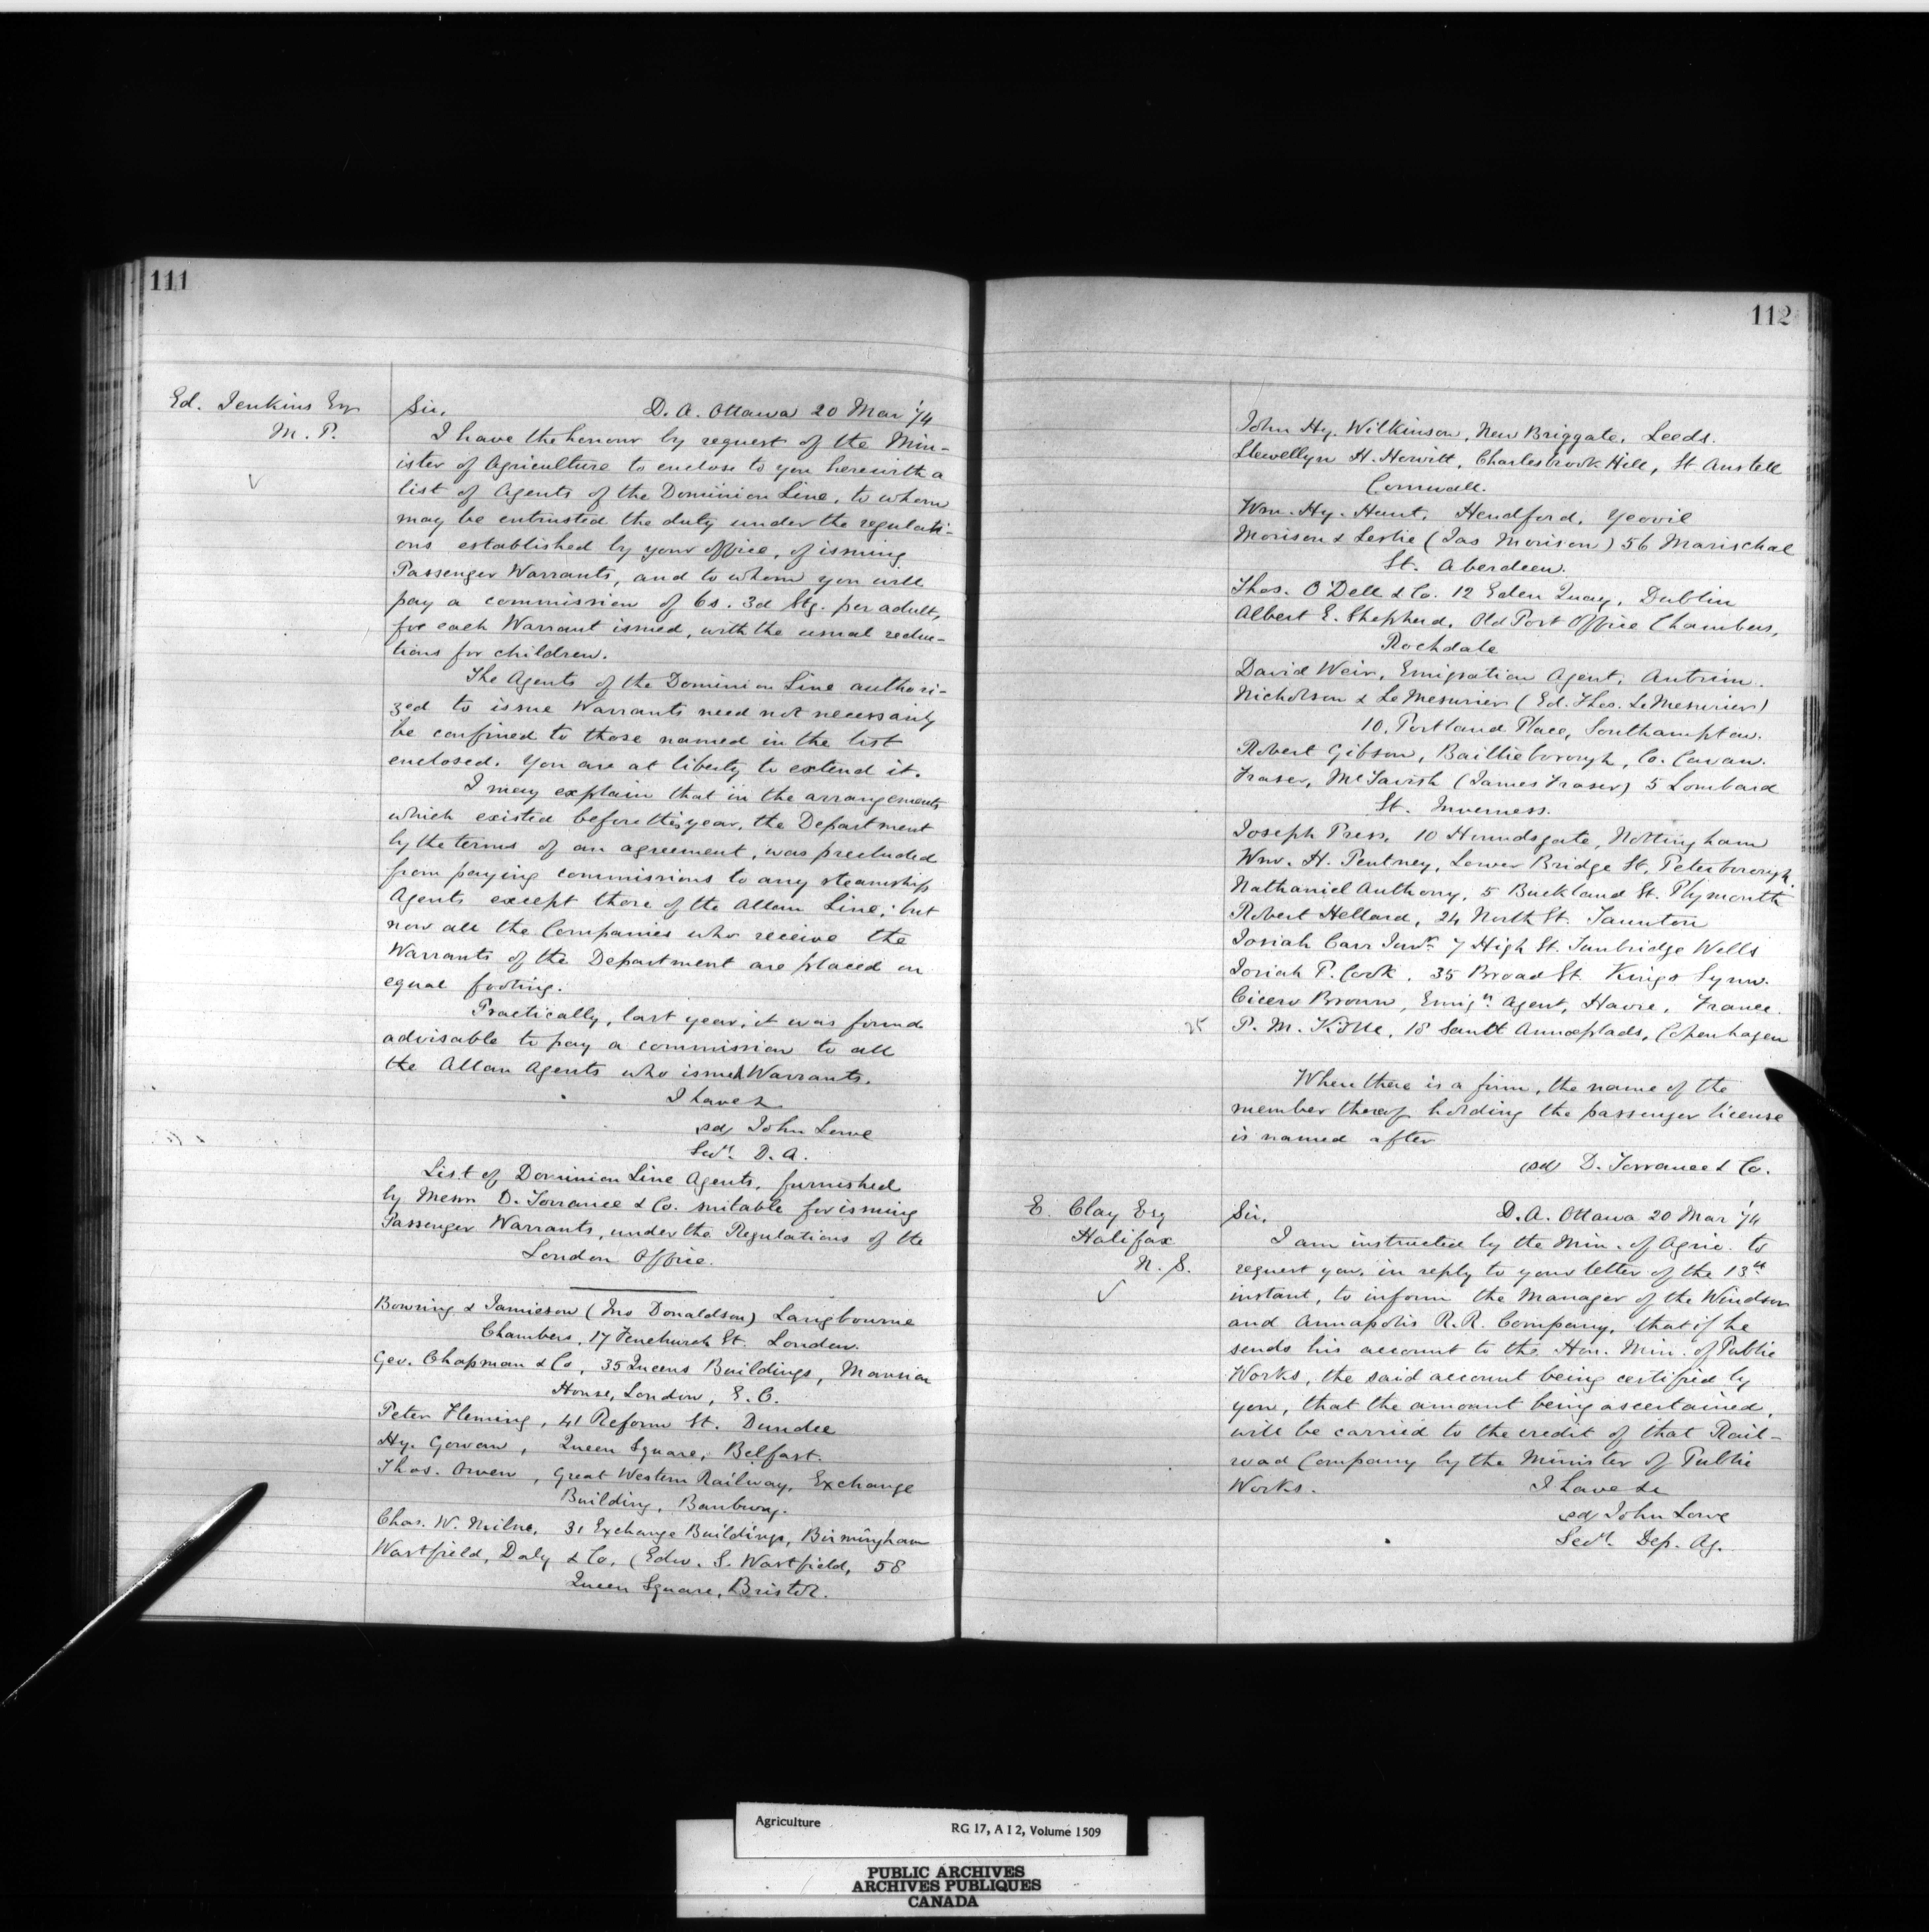 111
Ed. Jenkins Esq
M. P.
Sir, D. A. Ottawa 20 Mar '74
I have the honour by request of the Min-
ister of Agriculture to enclose to you herewith a
list of Agents of the Dominion Line, to whom
may be entrusted the duty under the regulati-
ons established by your office, of issuing
Passenger Warrants, and to whom you will
pay a commission of 6s. 3d Stg. per adult,
for each Warrant issued, with the usual reduc-
tions for children.
The Agents of the Dominion Line authori-
zed to issue Warrants need not necessarily
be confined to those named in the list
enclosed. You are at liberty to extend it.
I may explain that in the arrangements
which existed before this year, the Department
by the terms of an agreement, was precluded
from paying commissions to any steamship
Agents except those of the Allan Line; but
now all the Companies who receive the
Warrants of the Department are placed on
equal footing.
Practically, last year, it was found
advisable to pay a commission to all
the Allan Agents who issued Warrants.
I have &
sd John Lowe
Secy. D. A.
List of Dominion Line Agents, furnished
by Messrs D. Torrance & Co. suitable for issuing
Passenger Warrants, under the Regulations of the
London Office.
Bowring & Jamieson (Jno Donaldson) Langbourne
Chambers, 17 Fenchurch St. London.
Geo. Chapman & Co, 35 Queens Buildings, Mansion
House, London, E. C.
Peter Fleming, 41 Reform St. Dundee
Hy. Gowan, Queen Square, Belfast.
Thos. Owen, Great Western Railway, Exchange
Building, Banbury.
Chas. W. Milne, 31 Exchange Buildings, Birmingham
Wastfield, Daly & Co, (Edw. S. Wastfield, 58
Queen Square, Bristol.
112
John Hy. Wilkinson, New Briggate, Leeds.
Llewellyn H. Hewitt, Charlesbrook Hill, St Austell
Cornwall.
Wm. Hy. Hunt, Hendford, Yeovil
Morison & Leslie (Jas Morison) 56 Marischal
St. Aberdeen.
Thos. O'Dell & Co. 12 Eden Quay, Dublin
Albert E. Shepherd, Old Post Office Chambers,
Rochdale
David Weir, Emigration Agent, Antrim.
Nicholson & LeMesurier (Ed. Thos. LeMesurier)
10, Portland Place, Southampton.
Robert Gibson, Baillieborough, Co. Cavan.
Fraser, McTavish (James Fraser) 5 Lombard
St. Inverness.
Joseph Press, 10 Houndsgate, Nottingham
Wm. H. Pentney, Lower Bridge St. Peterborough.
Nathaniel Anthony, 5 Buckland St. Plymouth
Robert Hellard, 24 North St. Taunton
Josiah Carr Junr. 7 High St. Tunbridge Wells
Josiah P. Cook, 35 Broad St. Kings Lynn.
Cicero Brown, Emign. Agent, Havre, France.
25 P. M. Kölle, 18 Sankt Annæplads, Copenhagen
When there is a firm, the name of the
member thereof holding the passenger license
is named after
(sd) D. Torrance & Co.
E. Clay Esq
Halifax
N. S.
Sir, D. A. Ottawa 20 Mar '74
I am instructed by the Min. of Agric. to
request you, in reply to your letter of the 13th
instant, to inform the Manager of the Windsor
and Annapolis R. R. Company, that if he
sends his account to the Hon. Min. of Public
Works, the said account being certified by
you, that the amount being ascertained,
will be carried to the credit of that Rail-
road Company by the Minister of Public
Works. I have &c
sd John Lowe
Secy. Dep. Ag.
Agriculture RG 17, A I 2, Volume 1509
PUBLIC ARCHIVES
ARCHIVES PUBLIQUES
CANADA